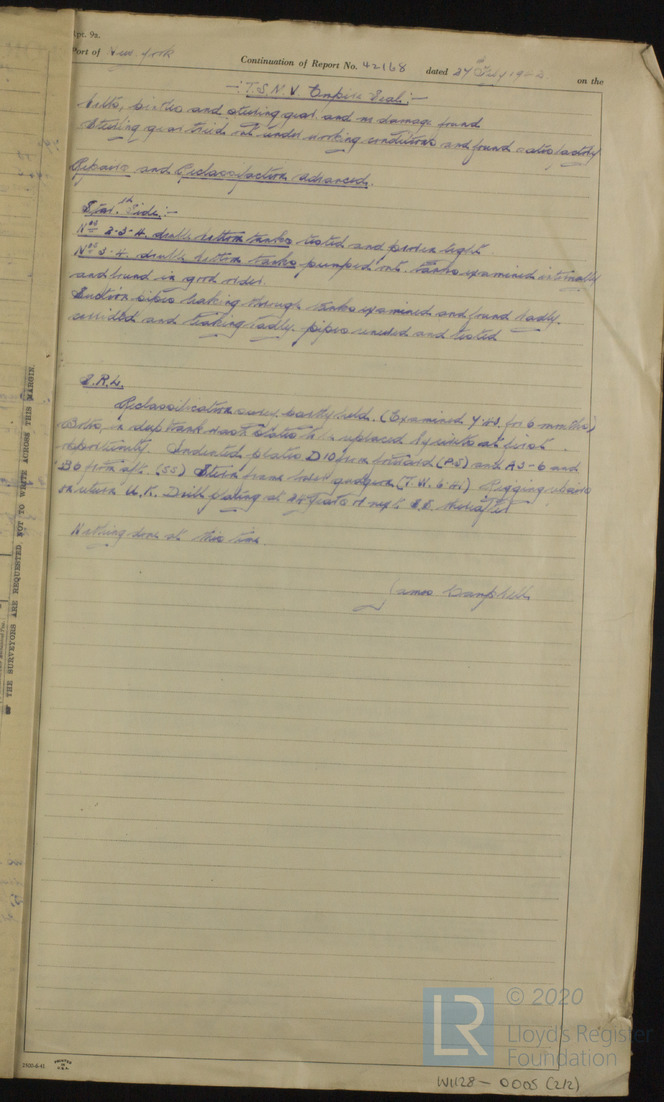 Rpt. 9a.
Port of New York
Continuation of Report No. 42168 dated 24th July 19 on the
-: T.S.M.V. Empire Seal :-
and steering gear and no damage found.
Steering gear tried out under working conditions and found satisfactory
Repairs and Reclassification Advanced.
Star. Side :-
Nos 2-3-4 double bottom tanks tested and proven tight.
Nos 3-4 double bottom tanks pumped out. Tanks examined internally
and found in good order.
Suction pipes leaking through tanks examined and found badly
corroded and leaking badly. pipes renewed and tested
S.R.L.
Reclassification survey partly held. (Examined 7.42 for 6 months)
Bolts, in deep tank to be replaced by rivets at first
opportunity. Indented plates D10 from forward (P.S) and A5-6 and
B6 from aft. (SS) Stern frame lower gudgeon (T.W. 6.41) Rigging
on return U.K. Drill plating at
Nothing done at this time.
James Campbell
THE SURVEYORS ARE REQUESTED NOT TO WRITE ACROSS THIS MARGIN.
PRINTED IN U.S.A.
LR
© 2020
Lloyd's Register
Foundation
W1128 - 0005 (2/2)